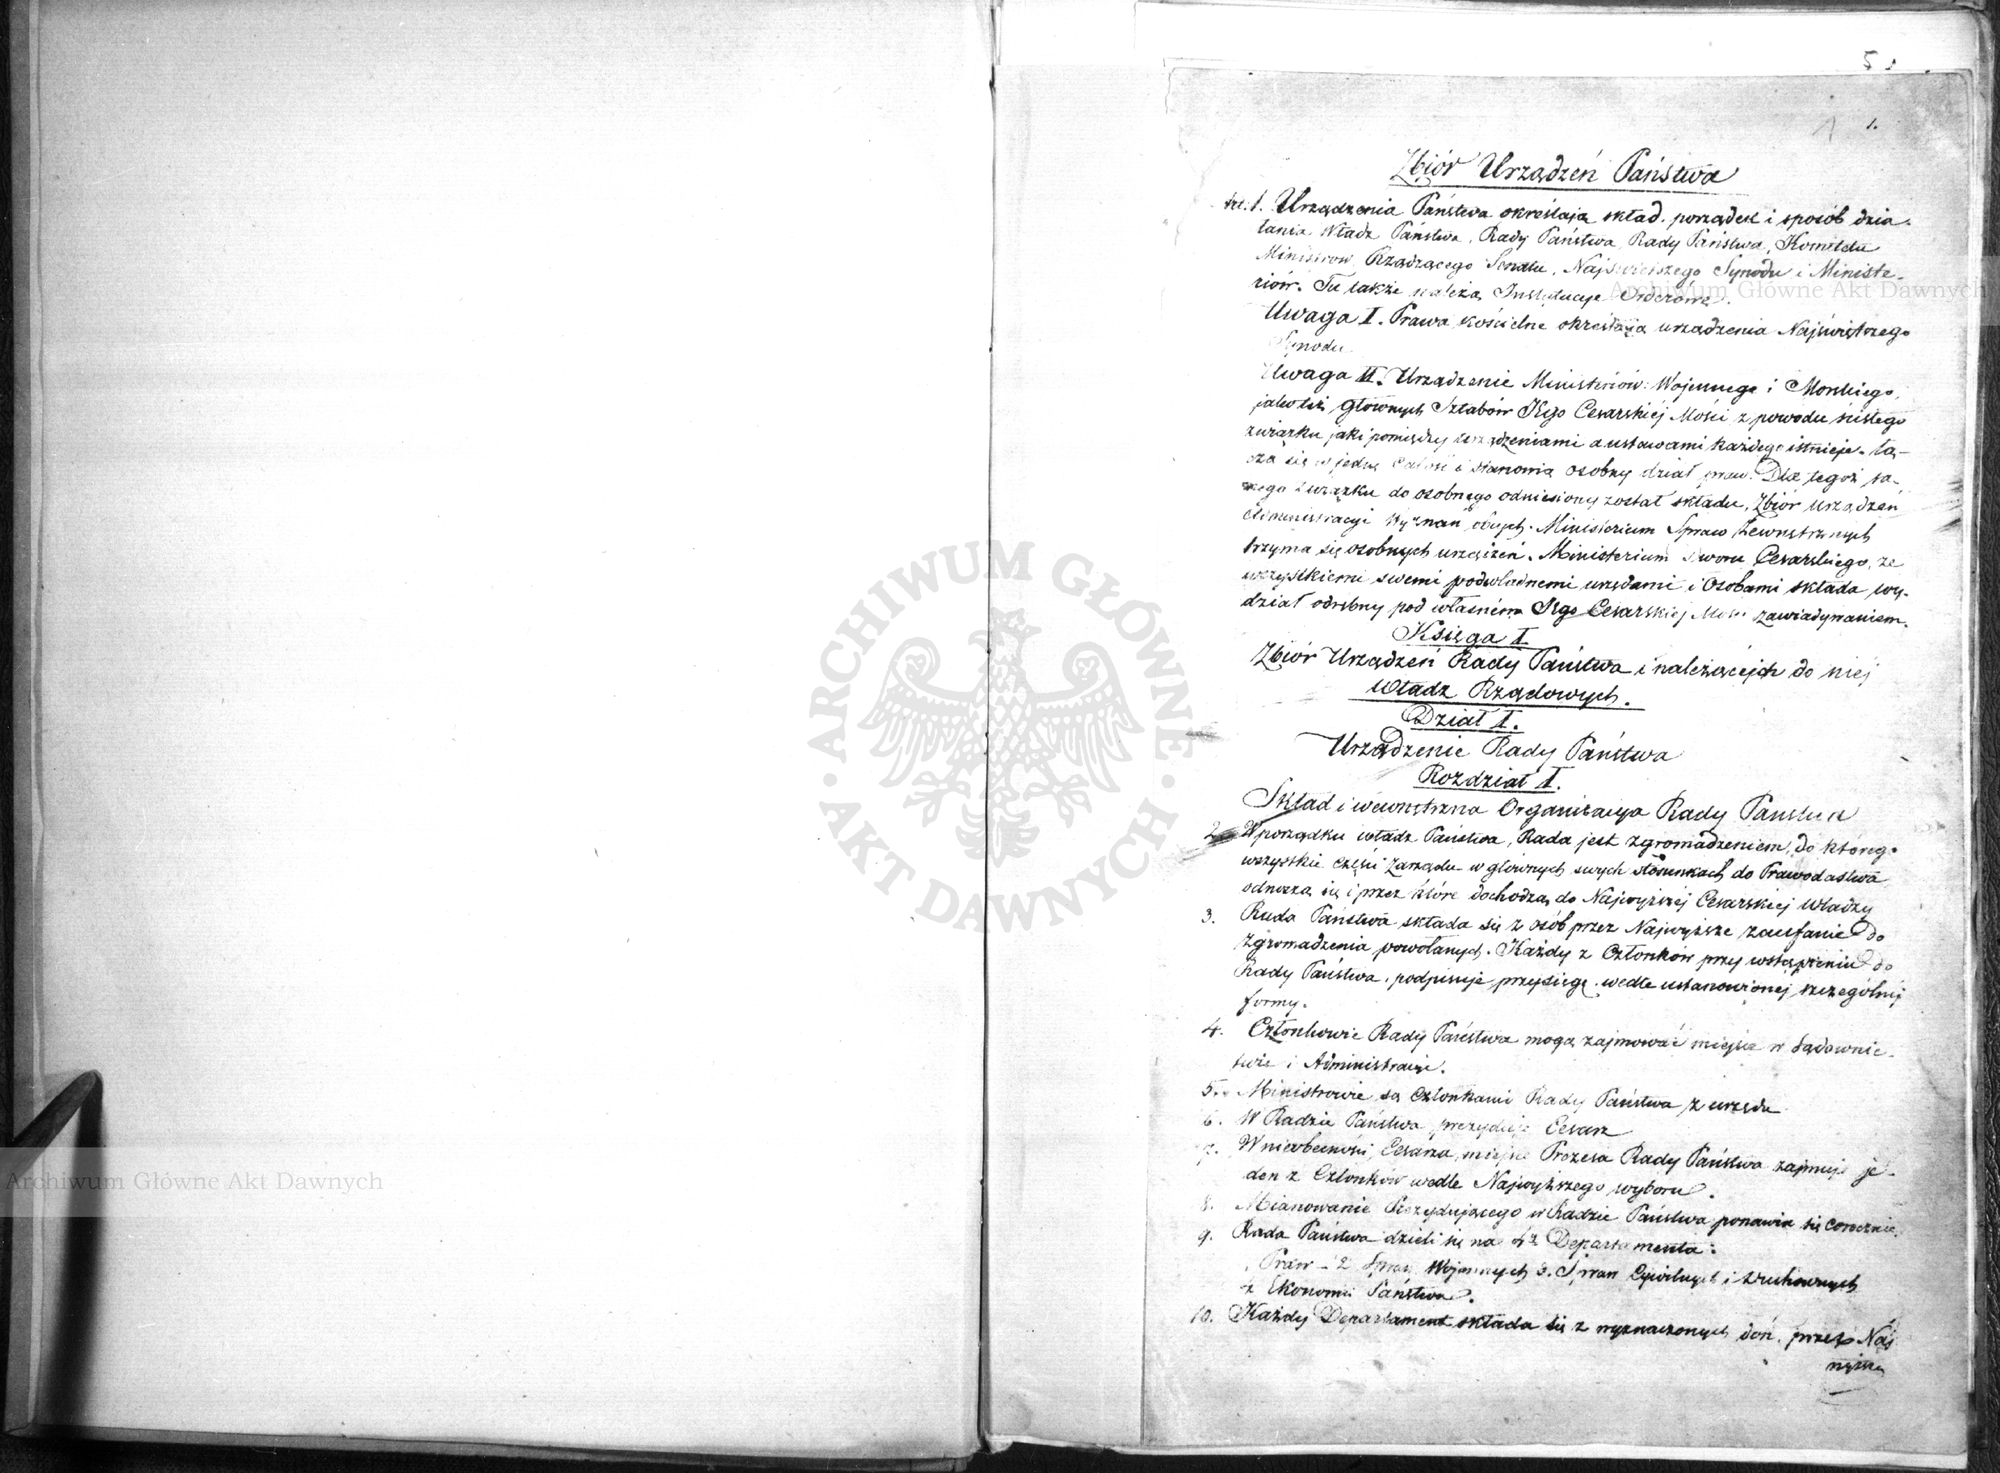 5
1.
Zbiór Urządzeń Państwa
Art. 1. Urządzenia Państwa określają skład, porządek i sposób dzia-
łania Władz Państwa, Rady Państwa, Rady Państwa, Komitetu
Ministrów, Rządzącego Senatu, Najświętszego Synodu i Ministe-
riów. Tu także należą Instytucye Orderowe.
Uwaga I. Prawa kościelne określają urządzenia Najświętszego
Synodu.
Uwaga II. Urządzenie Ministeriów: Wojennego i Morskiego,
jako też głównych Sztabów Jego Cesarskiéj Mości z powodu ścisłego
związku jaki pomiędzy urządzeniami a ustawami każdego istnieje, łą-
czą się w jedną całość i stanowią osobny dział praw. Dla tegoż sa-
mego związku do osobnego odniesiony został składu, Zbiór urządzeń
Administracyi Wyznań obcych. Ministerium Spraw Zewnętrznych
trzyma się osobnych urządzeń. Ministerium Dworu Cesarskiego, ze
wszystkiemi swemi podwładnemi urzędami i Osobami składa wy-
dział odrębny pod własném Jego Cesarskiej Mości zawiadywaniem.
Księga I
Zbiór Urządzeń Rady Państwa i należących do niej
Władz Rządowych.
Dział I.
Urządzenie Rady Państwa
Rozdział I.
Skład i wewnętrzna Organizacya Rady Państwa
2. W porządku władz Państwa, Rada jest zgromadzeniem, do którego
wszystkie części Zarządu w głównych swych stosunkach do Prawodastwa
odnoszą się i przez które dochodzą do Najwyższéj Cesarskiej Władzy
3. Rada Państwa składa się z osób przez Najwyższe zaufanie do
Zgromadzenia powołanych. Każdy z Członków przy wstąpieniu do
Rady Państwa, podpisuje przysięgę wedle ustanowionej szczególnéj
formy.
4. Członkowie Rady Państwa mogą zajmować miejsce w Sądownic-
twie i Administracyi.
5. Ministrowie są członkami Rady Państwa z urzędu
6. W Radzie Państwa prezyduje Cesarz
7. W nieobecności Cesarza, miejsce Prezesa Rady Państwa zajmuje je-
den z Członków wedle Najwyższego wyboru.
8. Mianowanie Prezydującego w Radzie Państwa ponawia się corocznie.
9. Rada Państwa dzieli się na 4y Departamenta:
1 Praw – 2 Spraw Wojennych 3. Spraw Cywilnych i Duchownych
4 Ekonomii Państwa.
10. Każdy Departament składa się z wyznaczonych doń, przez Naj
wyższą
Archiwum Główne Akt Dawnych
Archiwum Główne Akt Dawnych
ARCHIWUM GŁÓWNE · AKT DAWNYCH ·